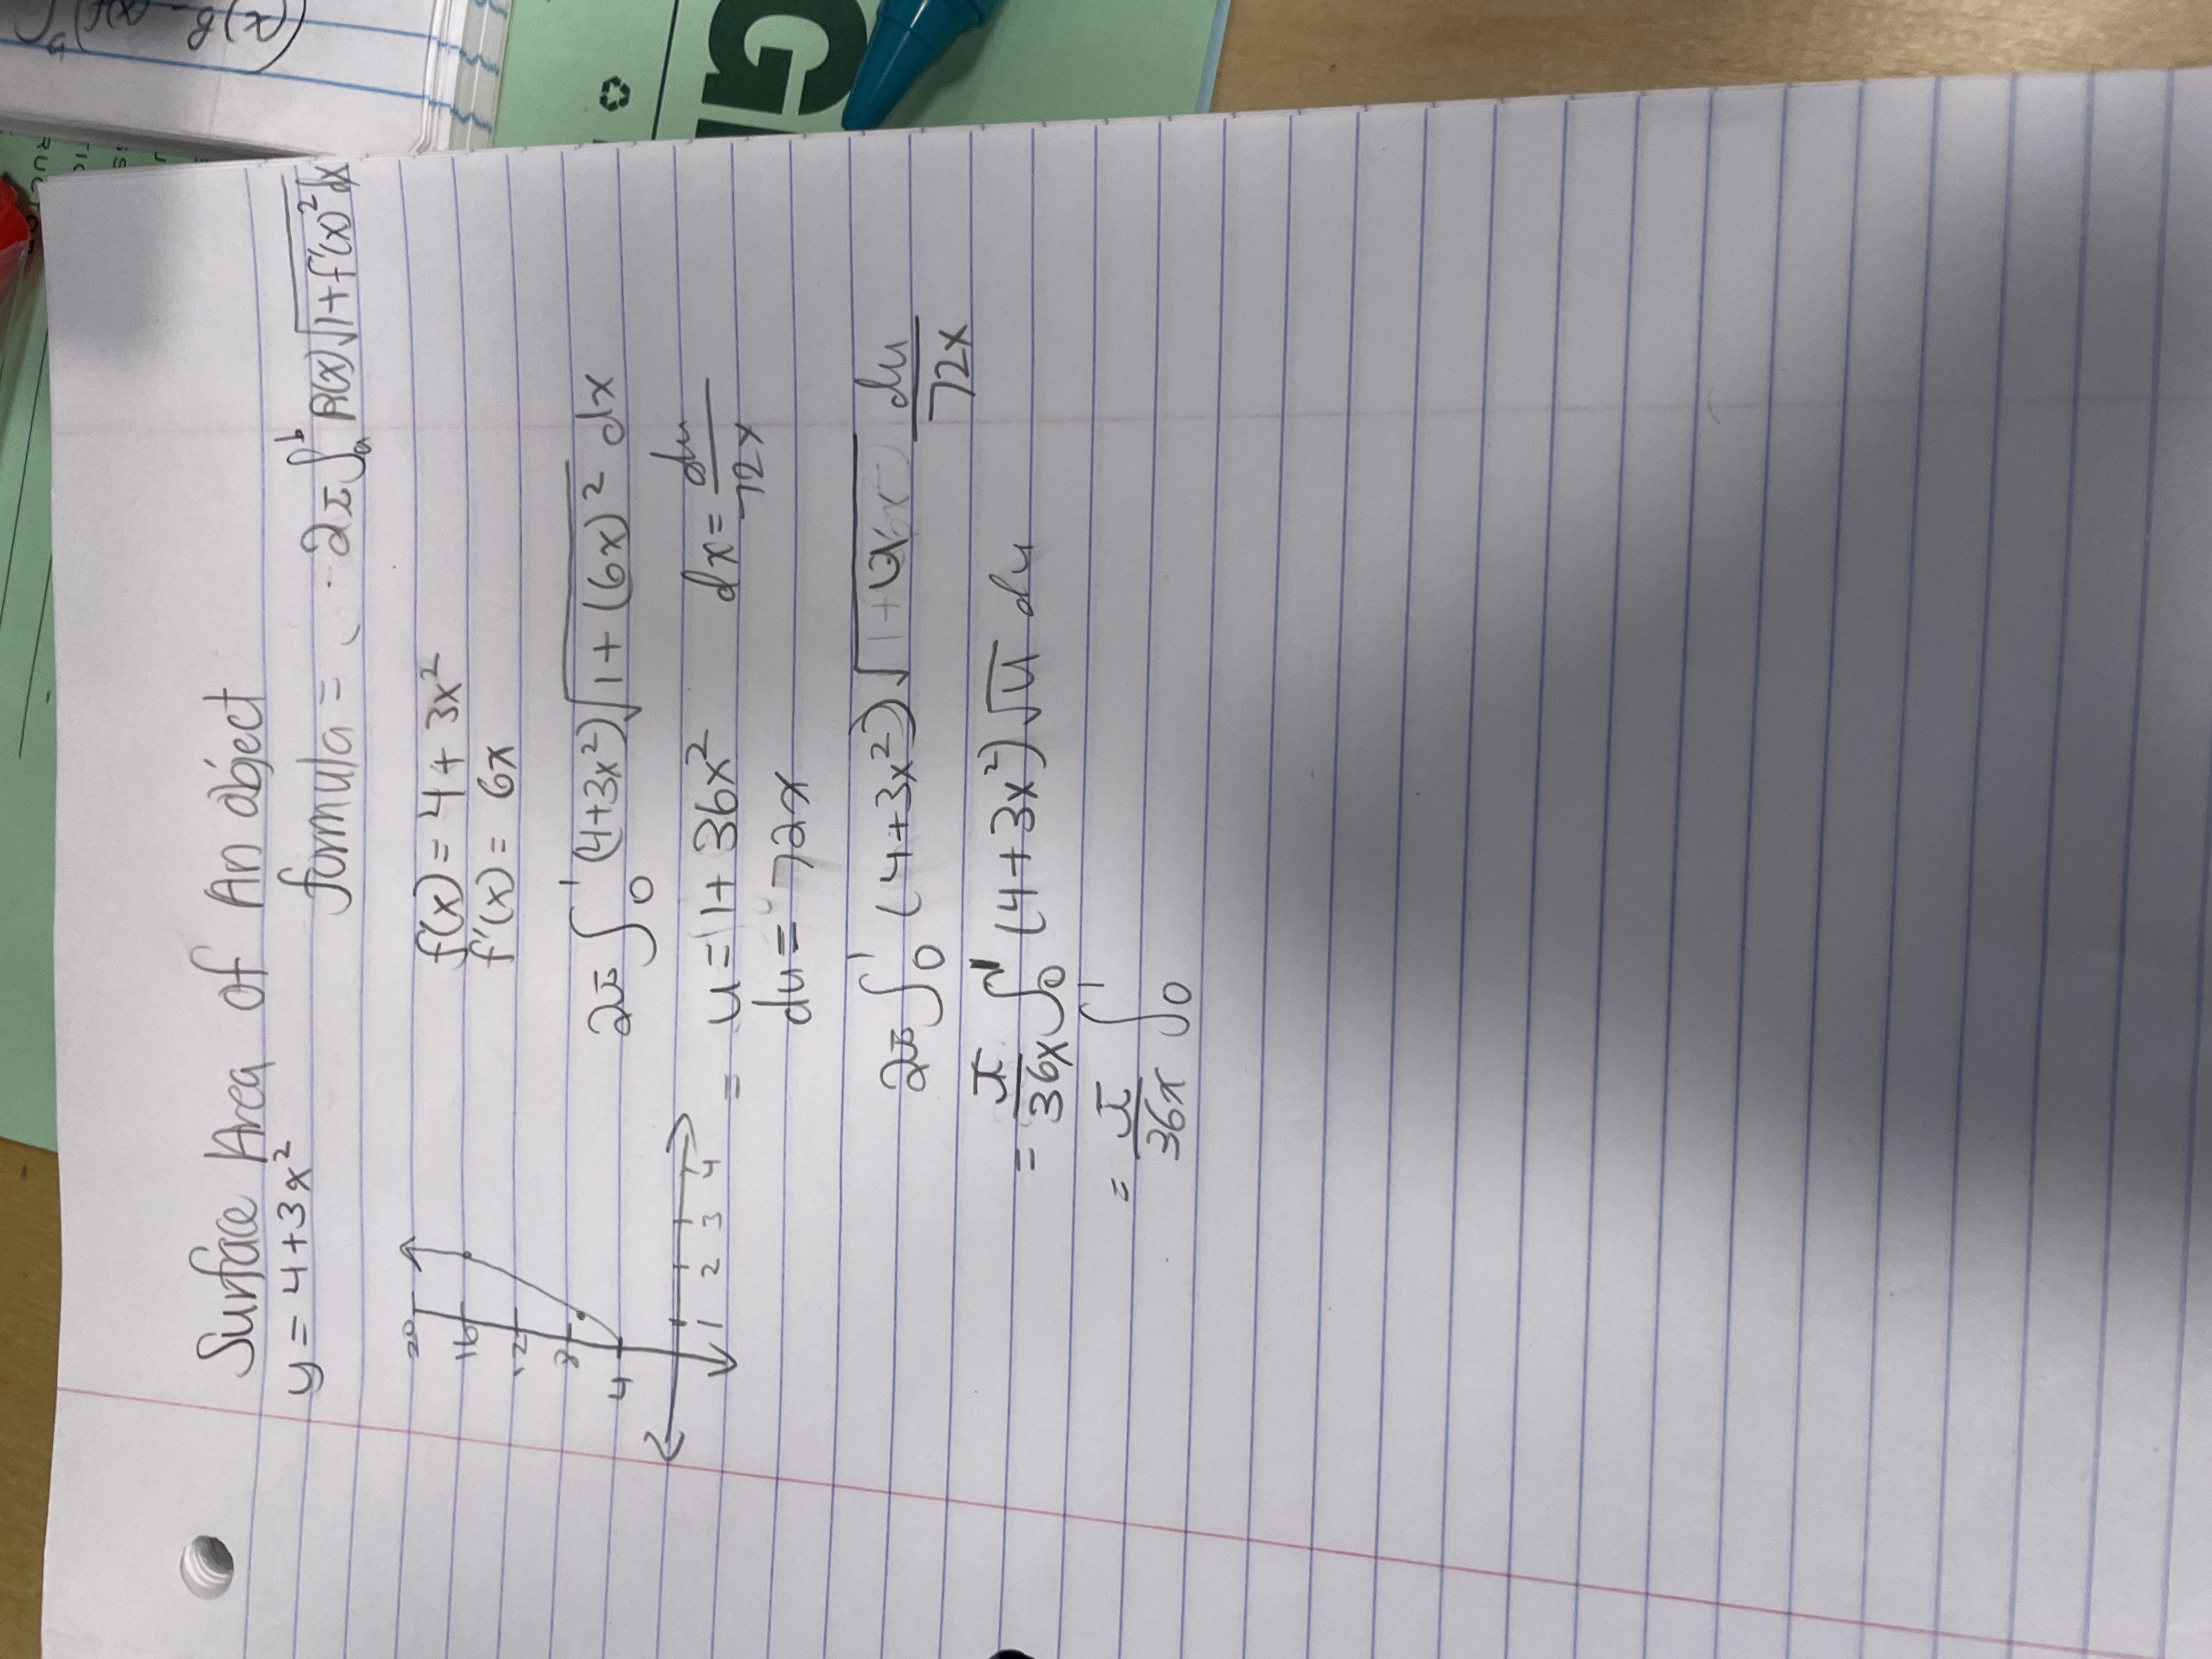 Surface Area of An object
y = 4+3x²
formula = 2π∫ₐᵇ R(x)√(1+f'(x)²) dx
20
16
12
8
4
1 2 3 4
f(x) = 4 + 3x²
f'(x) = 6x
2π ∫₀¹ (4+3x²)√(1+(6x)²) dx
= u = 1 + 36x² dx = du/72x
du = 72x
2π ∫₀¹ (4+3x²)√u du/72x
= π/36x ∫₀¹ (4+3x²) √u du
= π/36x ∫₀¹
g(x))
G